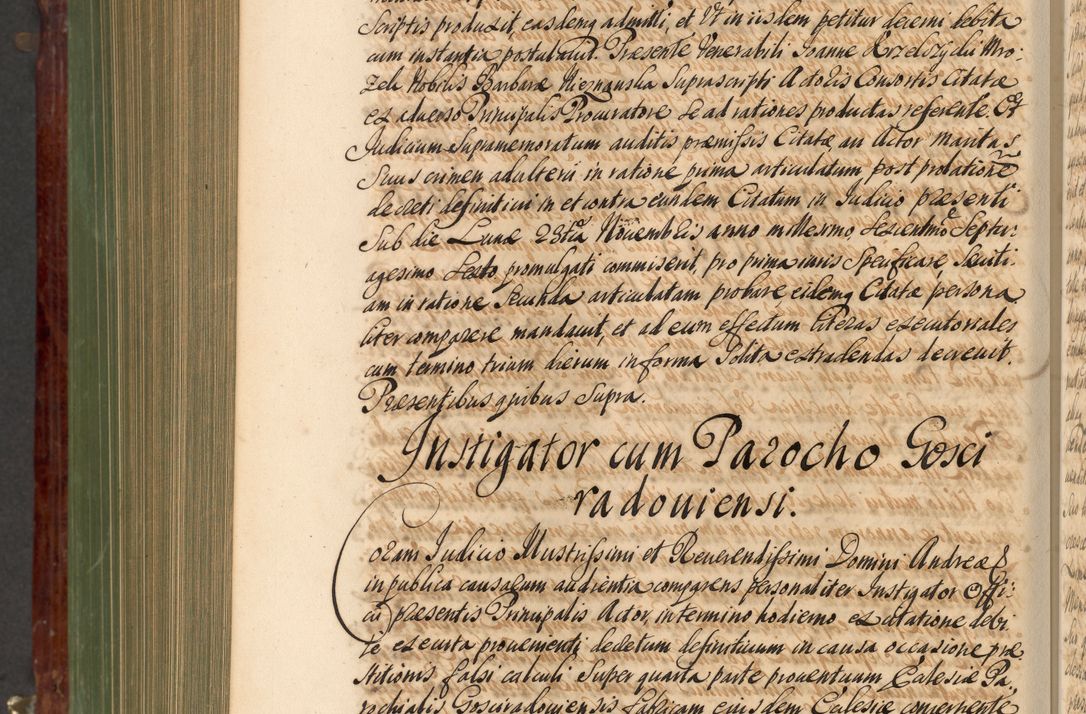 Scriptis produxit, easdemq admitti, et Vt in iisdem petitur decerni debita
cum instantia postulauit. Præsente Venerabili Joanne Krzelozÿdii Mro-
zek Nobilis Barbaræ Suprascripti Actoris Consortis Citatæ
ex aduerso Principalis Procuratore se ad rationes productas referente. Et
Judicium Supramemoratum auditis præmissis Citatæ an Actor Maritus
Suus crimen adulterii in ratione prima articulatum post probationē
decreti definitiui in et contra eundem Citatum in Judicio præsenti
Sub die Lunæ 23tia Nouembris anno millesimo, Sexcentmo Septu-
agesimo Sexto promulgati commiserit, pro prima iuris Specificare, Sæuiti-
am in ratione Secunda articulatam probare eidemq Citatæ persona
liter comparere mandauit, et ad eum effectum literas executoriales
cum termino trium dierum in forma Solita extradendas decreuit.
Præsentibus quibus Supra.
Instigator cum Parocho Gosci
radouiensi.
Coram Judicio Illustrissimi et Reuerendissimi Domini Andreæ E
in publica causarum audientia comparens personaliter Instigator Offi-
cii præsentis Principalis Actor, in termino hodierno ex citatione debi-
te executa prouenienti decretum definitiuum in causa occasione præ
stitionis falsi calculi Super quarta parte prouentuum Ecclesiæ Pa-
rochialis Gosciradouiensis fabricam eiusdem Ecclesiæ concernente